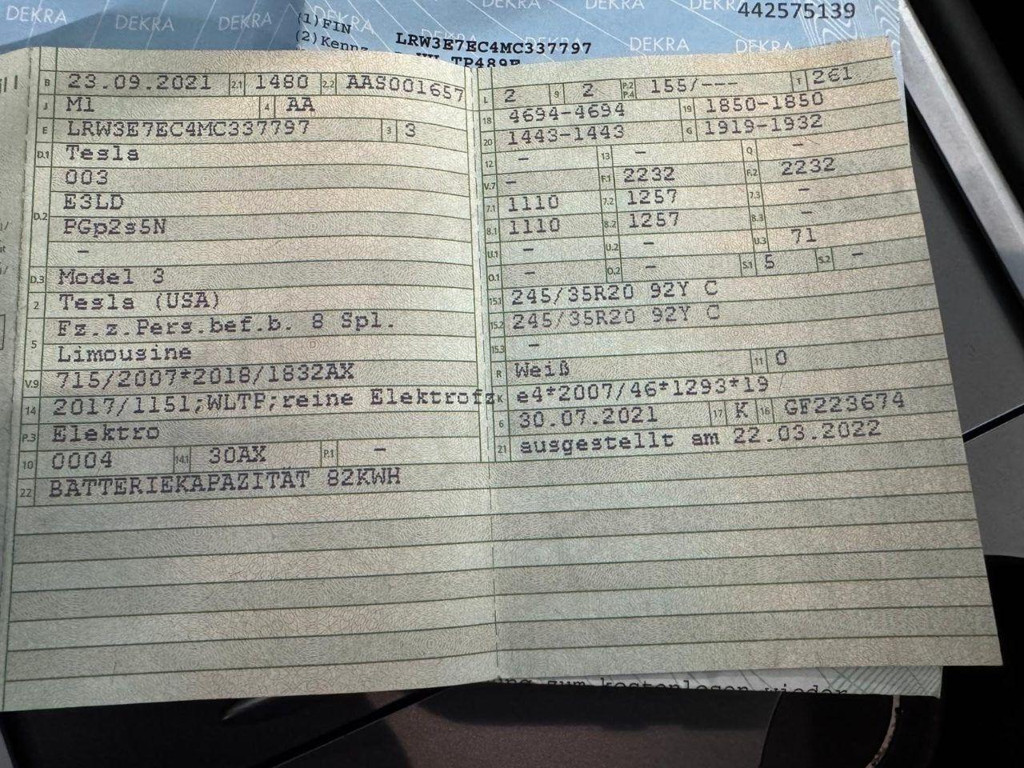 DEKRA DEKRA DEKRA DEKRA DEKRA
442575139
(1)FIN LRW3E7EC4MC337797
DEKRA DEKRA
B 23.09.2021 2.1 1480 2.2 AAS001657
J M1 4 AA
E LRW3E7EC4MC337797 3 3
D.1 Tesla
003
D.2 E3LD
PGp2s5N
–
D.3 Model 3
2 Tesla (USA)
5 Fz.z.Pers.bef.b. 8 Spl.
Limousine
V.9 715/2007*2018/1832AX
14 2017/1151;WLTP;reine Elektrofz
P.3 Elektro
10 0004 14.1 30AX P.1 –
22 BATTERIEKAPAZITÄT 82KWH
L 2 9 2 P.2 P.4 155/--- T 261
18 4694-4694 19 1850-1850
20 1443-1443 G 1919-1932
12 – 13 – Q –
V.7 – F.1 2232 F.2 2232
7.1 1110 7.2 1257 7.3 –
8.1 1110 8.2 1257 8.3 –
U.1 – U.2 – U.3 71
O.1 – O.2 – S.1 5 S.2 –
15.1 245/35R20 92Y C
15.2 245/35R20 92Y C
15.3 –
R Weiß 11 0
K e4*2007/46*1293*19
6 30.07.2021 17 K 16 GF223674
21 ausgestellt am 22.03.2022
zum kostenlosen wieder